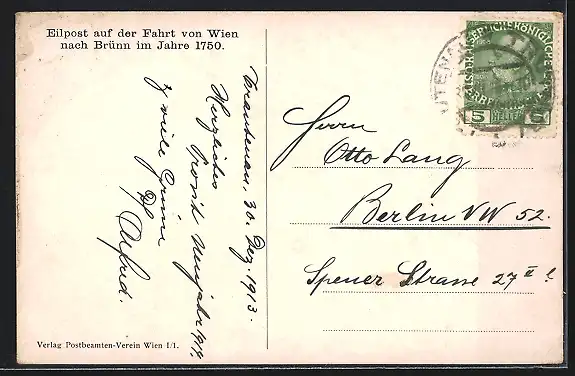 Eilpost auf der Fahrt von Wien
nach Brünn im Jahre 1750.
Trautenau, 30. Dez. 1913.
Herzliches
Prosit Neujahr 1914.
viele Grüsse
Alfred.
Verlag Postbeamten-Verein Wien I/1.
UTENA
5 HELLER 5
Herrn
Otto Lang
Berlin NW 52.
Spener Strasse 27 II l